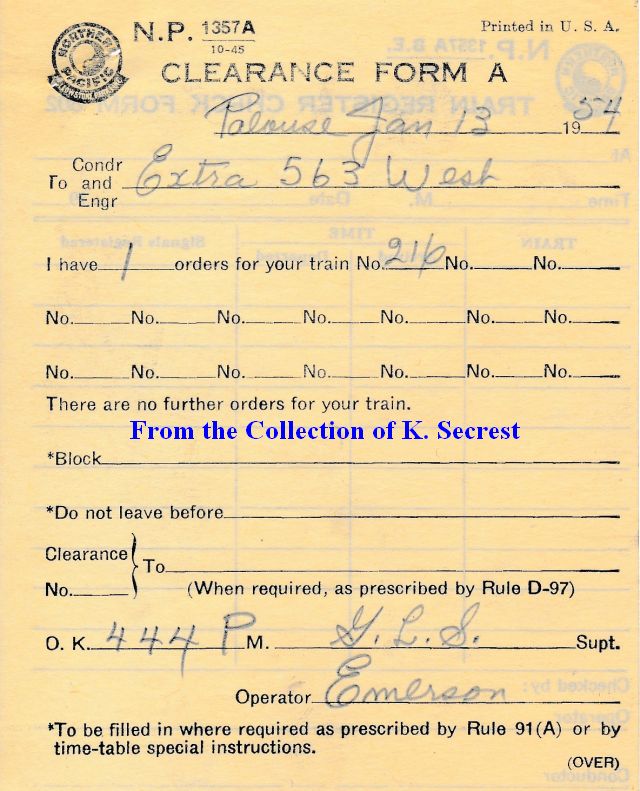 NORTHERN
PACIFIC
N.P. 1357A
10-45
Printed in U. S. A.
CLEARANCE FORM A
Palouse Jan 13 1954
Condr
To and Extra 563 West
Engr
I have 1 orders for your train No. 216 No. No.
No. No. No. No. No. No. No.
No. No. No. No. No. No. No.
There are no further orders for your train.
From the Collection of K. Secrest
*Block
*Do not leave before
Clearance
To
No. (When required, as prescribed by Rule D-97)
O. K. 444 P M. G. L. S. Supt.
Operator Emerson
*To be filled in where required as prescribed by Rule 91(A) or by
time-table special instructions.
(OVER)